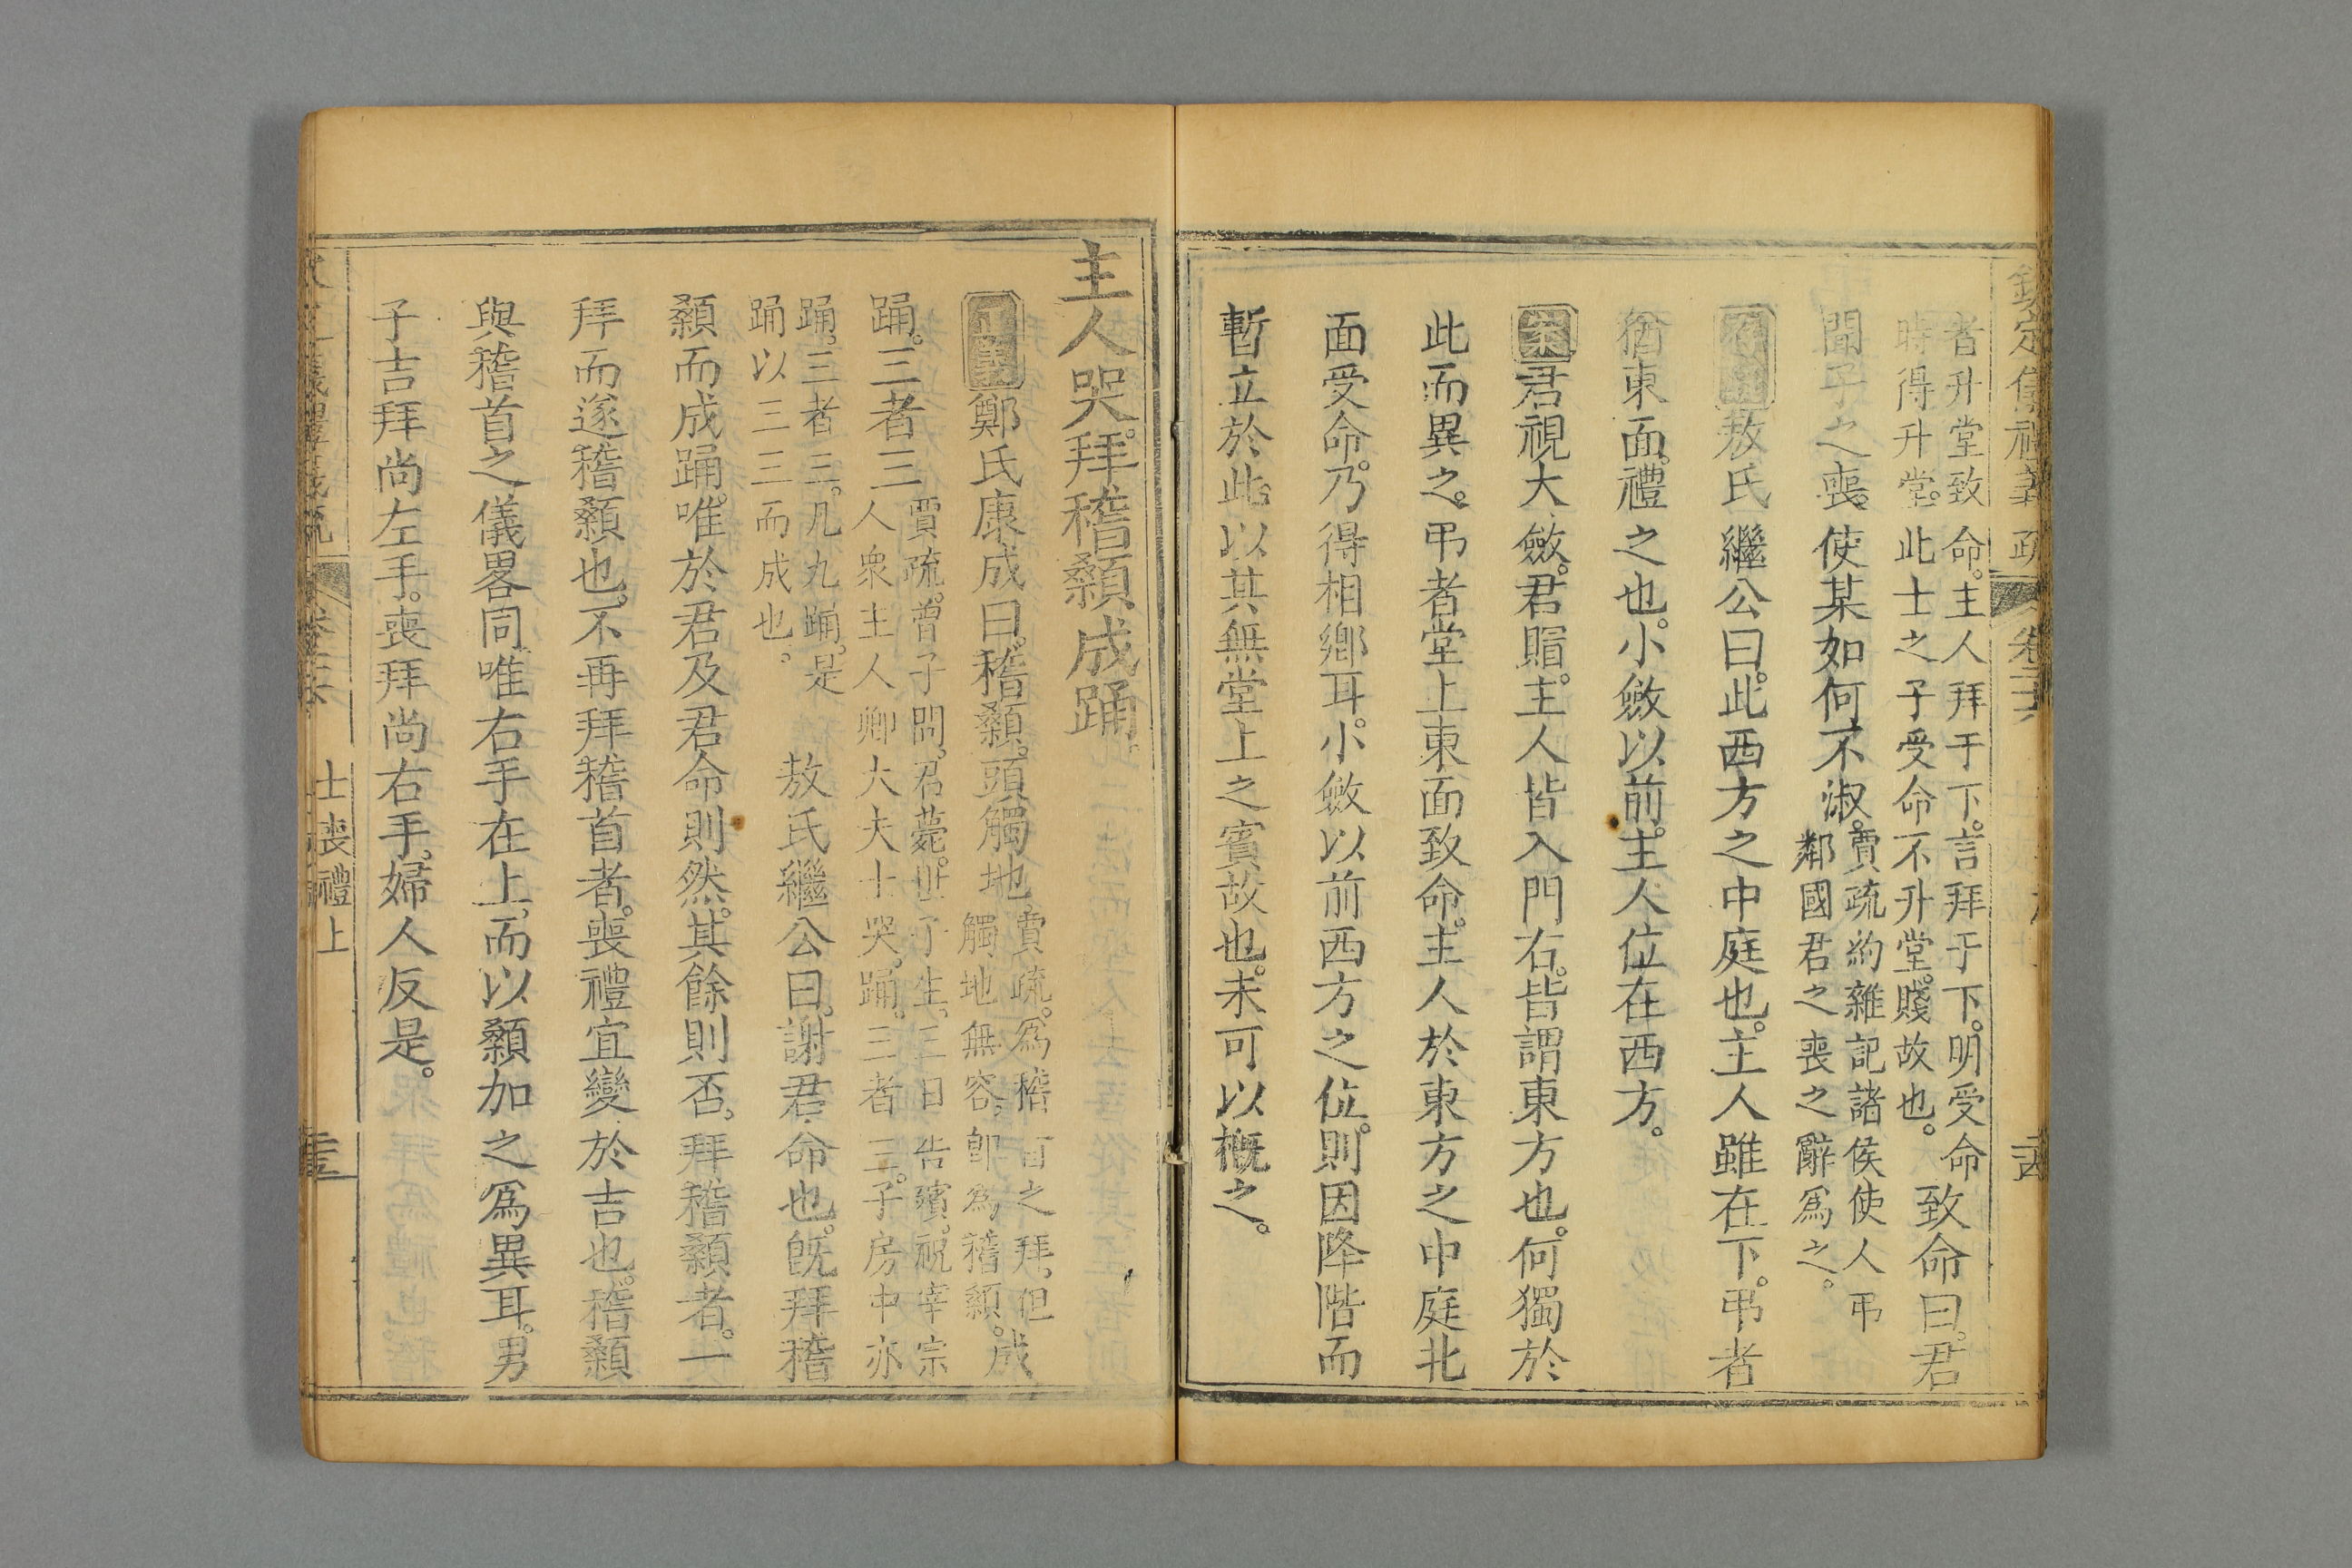 欽定儀禮義疏 卷二十六
者升堂致命。主人拜于下。言拜于下。明受命
時得升堂。此士之子受命不升堂。賤故也。致命曰。君
聞子之喪。使某如何不淑。賈疏約雜記諸侯使人弔
鄰國君之喪之辭爲之。
存疑敖氏繼公曰。此西方之中庭也。主人雖在下。弔者
猶東面。禮之也。小斂以前。主人位在西方。
案君視大斂。君賵。主人皆入門右。皆謂東方也。何獨於
此而異之。弔者堂上東面致命。主人於東方之中庭北
面受命。乃得相鄉耳。小斂以前西方之位。則因降階而
暫立於此。以其無堂上之賓故也。未可以概之。
主人哭。拜稽顙。成踊。
正義鄭氏康成曰。稽顙。頭觸地。賈疏。爲稽首之拜。但
觸地無容。卽爲稽顙。成
踊。三者三。賈疏。曾子問。君薨。世子生。三日告殯。祝宰宗
人衆主人卿大夫士哭。踊。三者三。子房中亦
踊。三者三。凡九踊。是
踊以三三而成也。敖氏繼公曰。謝君命也。旣拜稽
顙而成踊。唯於君及君命則然。其餘則否。拜稽顙者。一
拜而遂稽顙也。不再拜稽首者。喪禮宜變於吉也。稽顙
與稽首之儀畧同。唯右手在上。而以顙加之爲異耳。男
子吉拜尚左手。喪拜尚右手。婦人反是。
士喪禮上